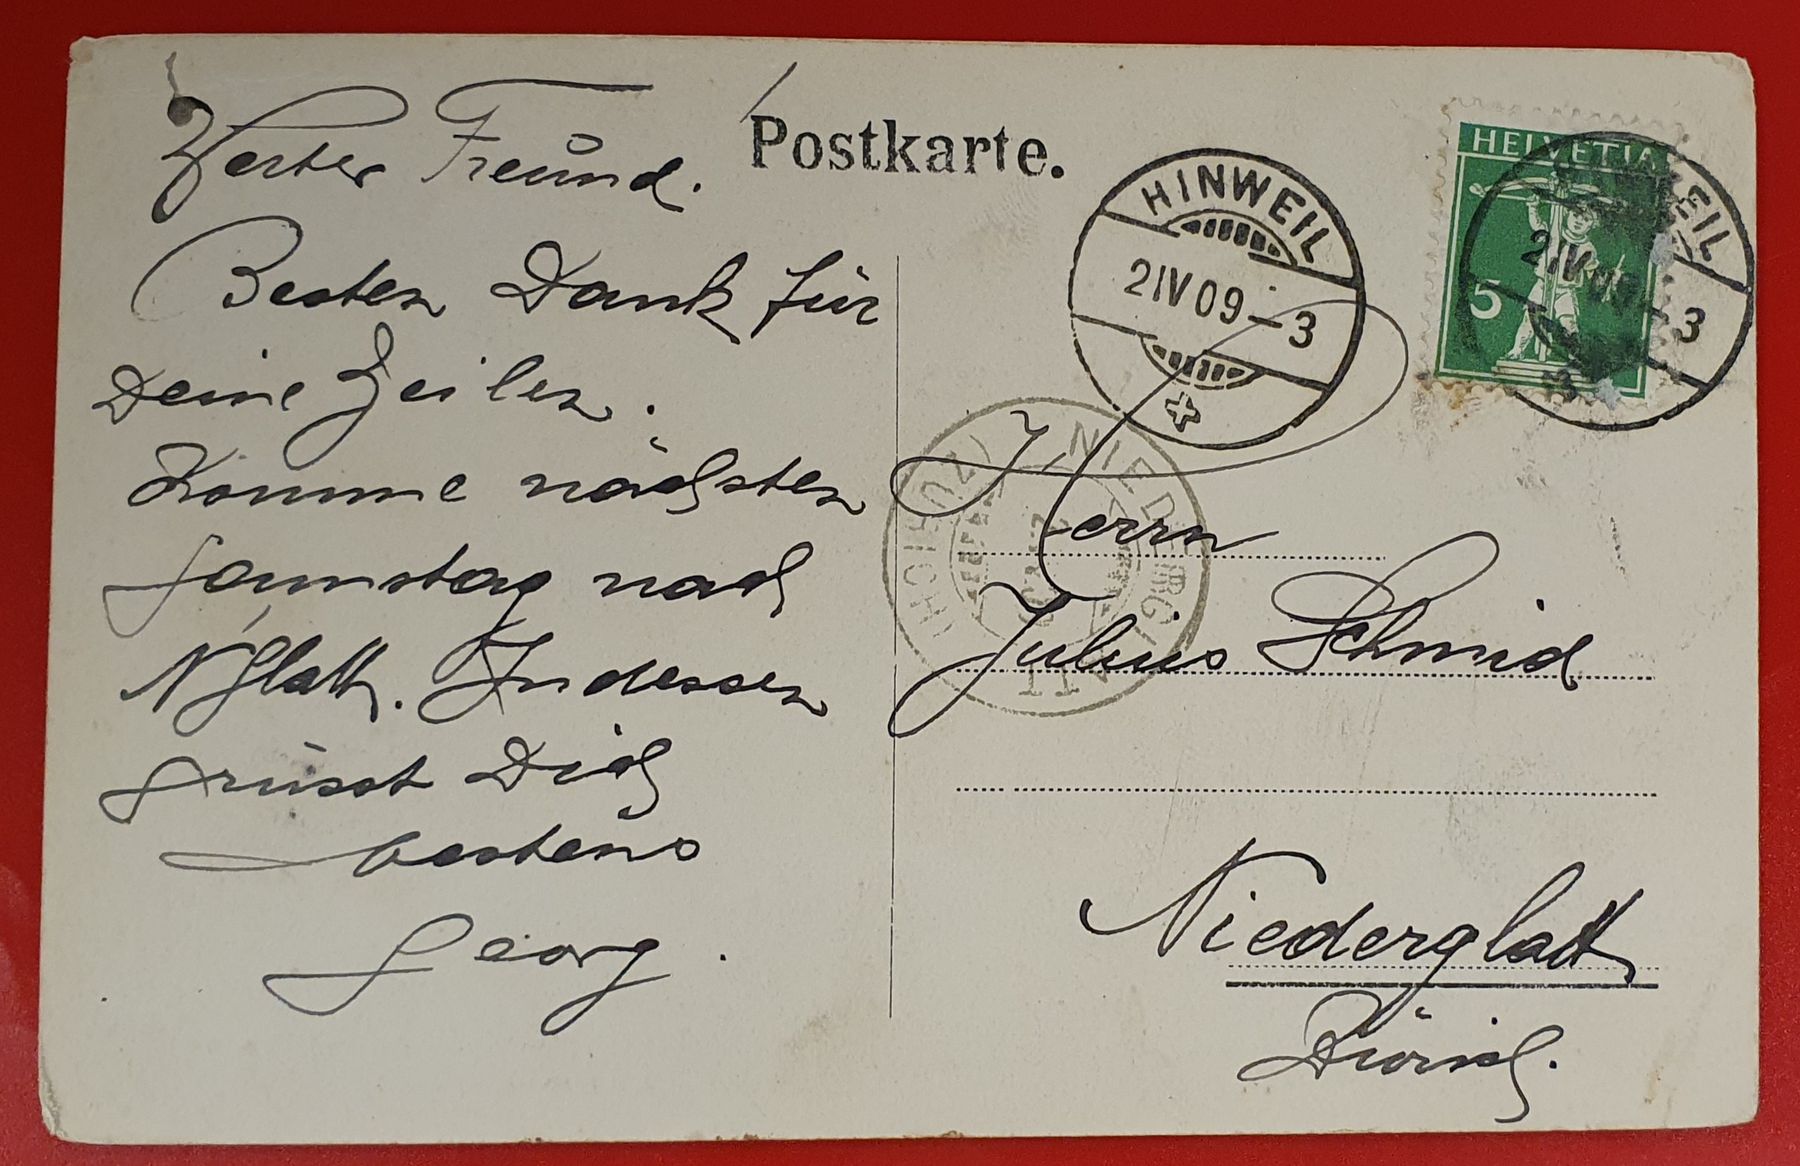 Postkarte.
Werter Freund.
Besten Dank für
Deine Zeilen.
Komme nächsten
Samstag nach
N'Glatt. Indessen
grüsst Dich
bestens
Georg.
HELVETIA
5
HINWEIL
2 IV 09 – 3
HINWEIL
2 IV 09 – 3
NIEDERGLATT
(ZÜRICH)
Herrn
Julius Schmid
Niederglatt
Zürich.